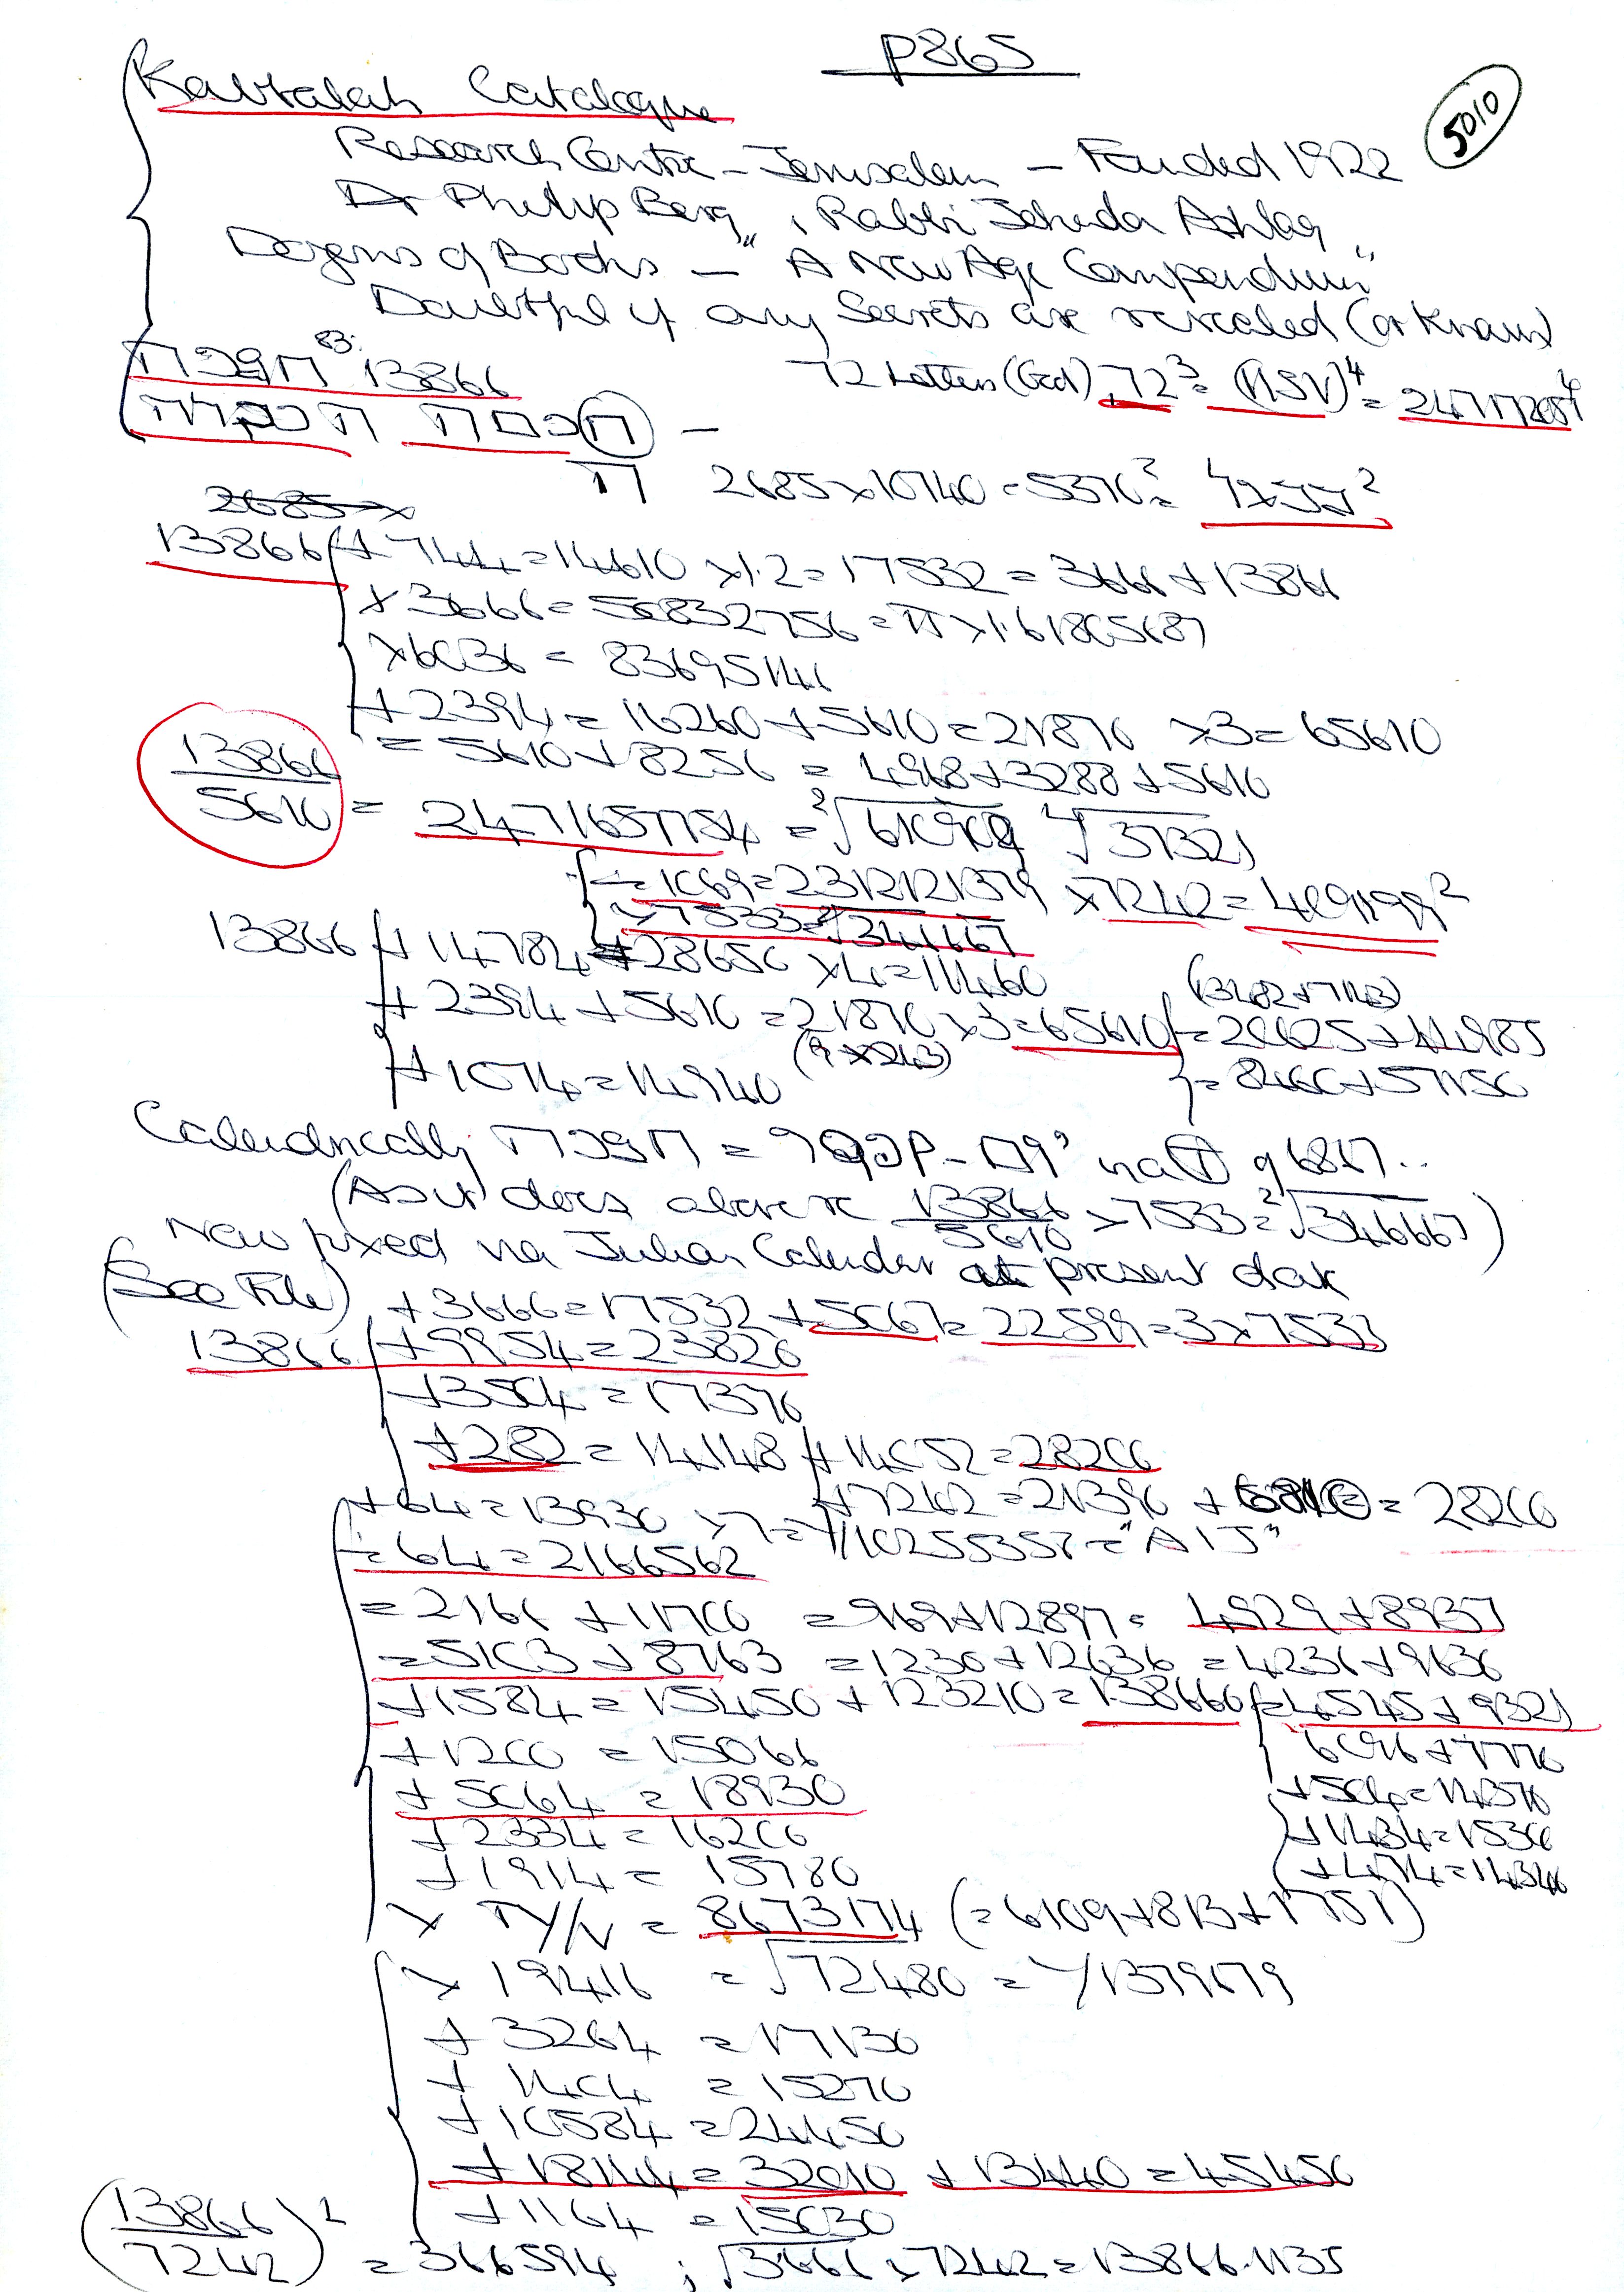 P865
5010
Kabbalah Catalogue
Research Centre - Jerusalem - Founded 1922
Dr Philip Berg, Rabbi Jehuda Ashlag
Dozens of Books - "A New Age Compendium"
Doubtful if any Secrets are revealed (or Known)
13866
72 Letters (God) 72³ =
2685 × 10740 = 5370² =
13866 + 744 = 14610 × 1.2 = 17532 = 3666 + 13866
× 3666 = 50832756 = π × 161805687
× 6036 = 83695146
+ 2394 = 16260 + 5610 = 21870 × 3 = 65610
= 5610 + 8256 = 4968 + 3288 + 5610
13866/5610 = 2471657754 =
÷ 1069 = 2312121379 × 7242 = 409199²
× 7533 =
13866 + 14784 = 28650 × 4 = 114600
(13482 + 7143)
+ 2394 + 5610 = 21870 × 3 = 65610 = 20625 + 44985
(9 × 243)
= 8460 + 57150
+ 1074 = 14940
Calendrically
(As it does above × 13866/5610 × 7533 = ²√346667)
Now fixed via Julian Calendar at present date
(See File)
+ 3666 = 17532 + 5067 = 22599 = 3 × 7533
13866 + 9954 = 23820
+ 3504 = 17370
+ 282 = 14148 + 14052 = 28200
+ 7242 = 21390 + 6810 = 28200
+ 64 = 13930 × 7 = 1/10255358 = "A1J"
÷ 64 = 2166562
= 2166 + 11700 = 969 + 12897 = 4929 + 8937
= 5103 + 8763 = 1230 + 12636 = 4236 + 9630
+ 1584 = 15450 + 123210 = 138660 = 4545 + 9321
+ 1200 = 15066
6096 + 7770
+ 5064 = 18930
+ 504 = 14370
+ 2334 = 16200
+ 1434 = 15300
+ 1914 = 15780
+ 474 = 14340
= 8673174 (= 6109 + 813 + 1751)
× 19416 = √72480 = 1/1379679
+ 3264 = 17130
+ 1404 = 15270
+ 10584 = 24450
+ 18144 = 32010 + 13440 = 45450
+ 1164 = 15030
(13866/7242)² = 366594 ; √3666 × 7242 = 13866.1135